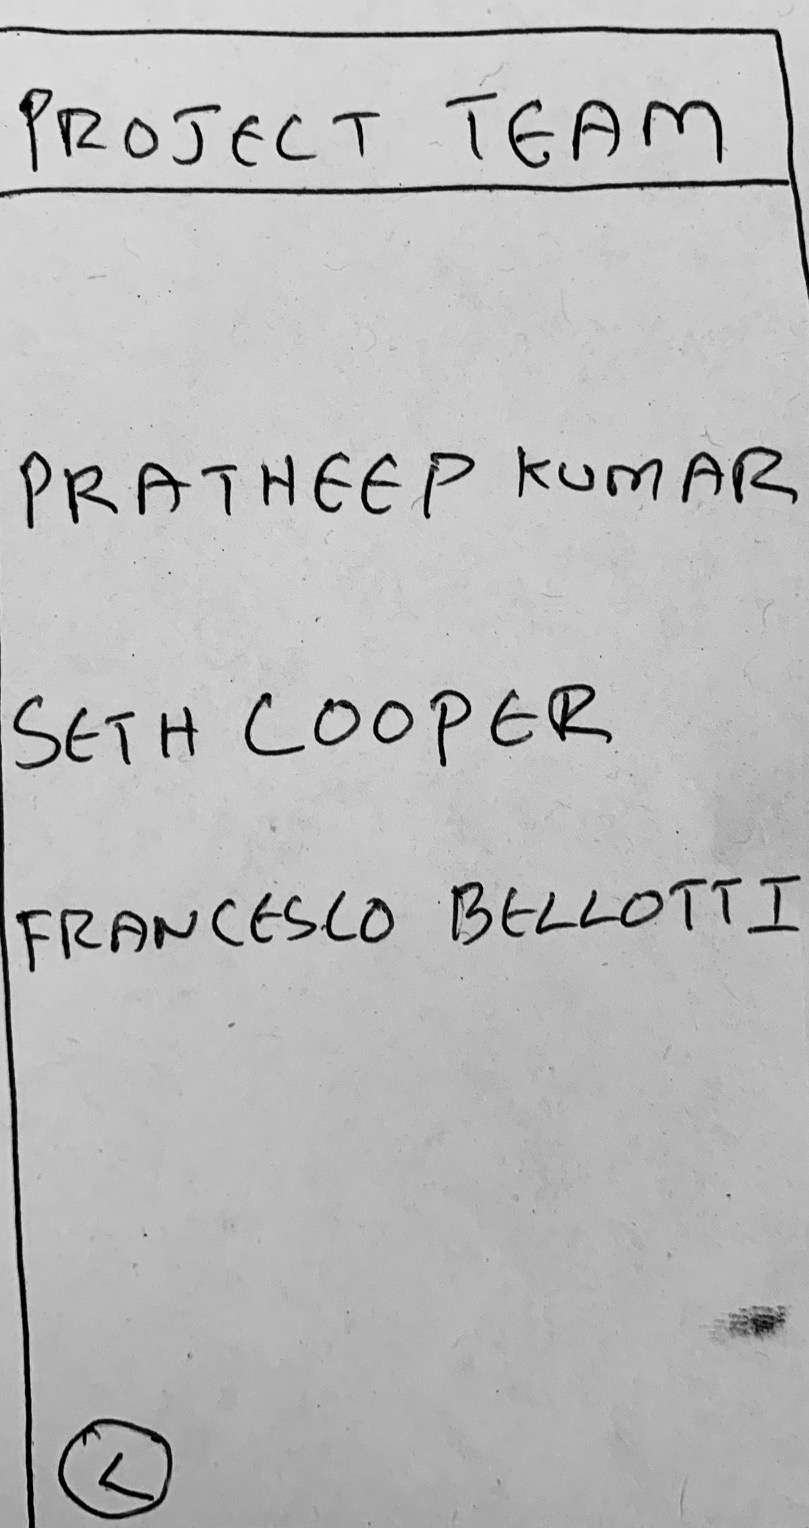 PROJECT TEAM
PRATHEEP KUMAR
SETH COOPER
FRANCESCO BELLOTTI
<